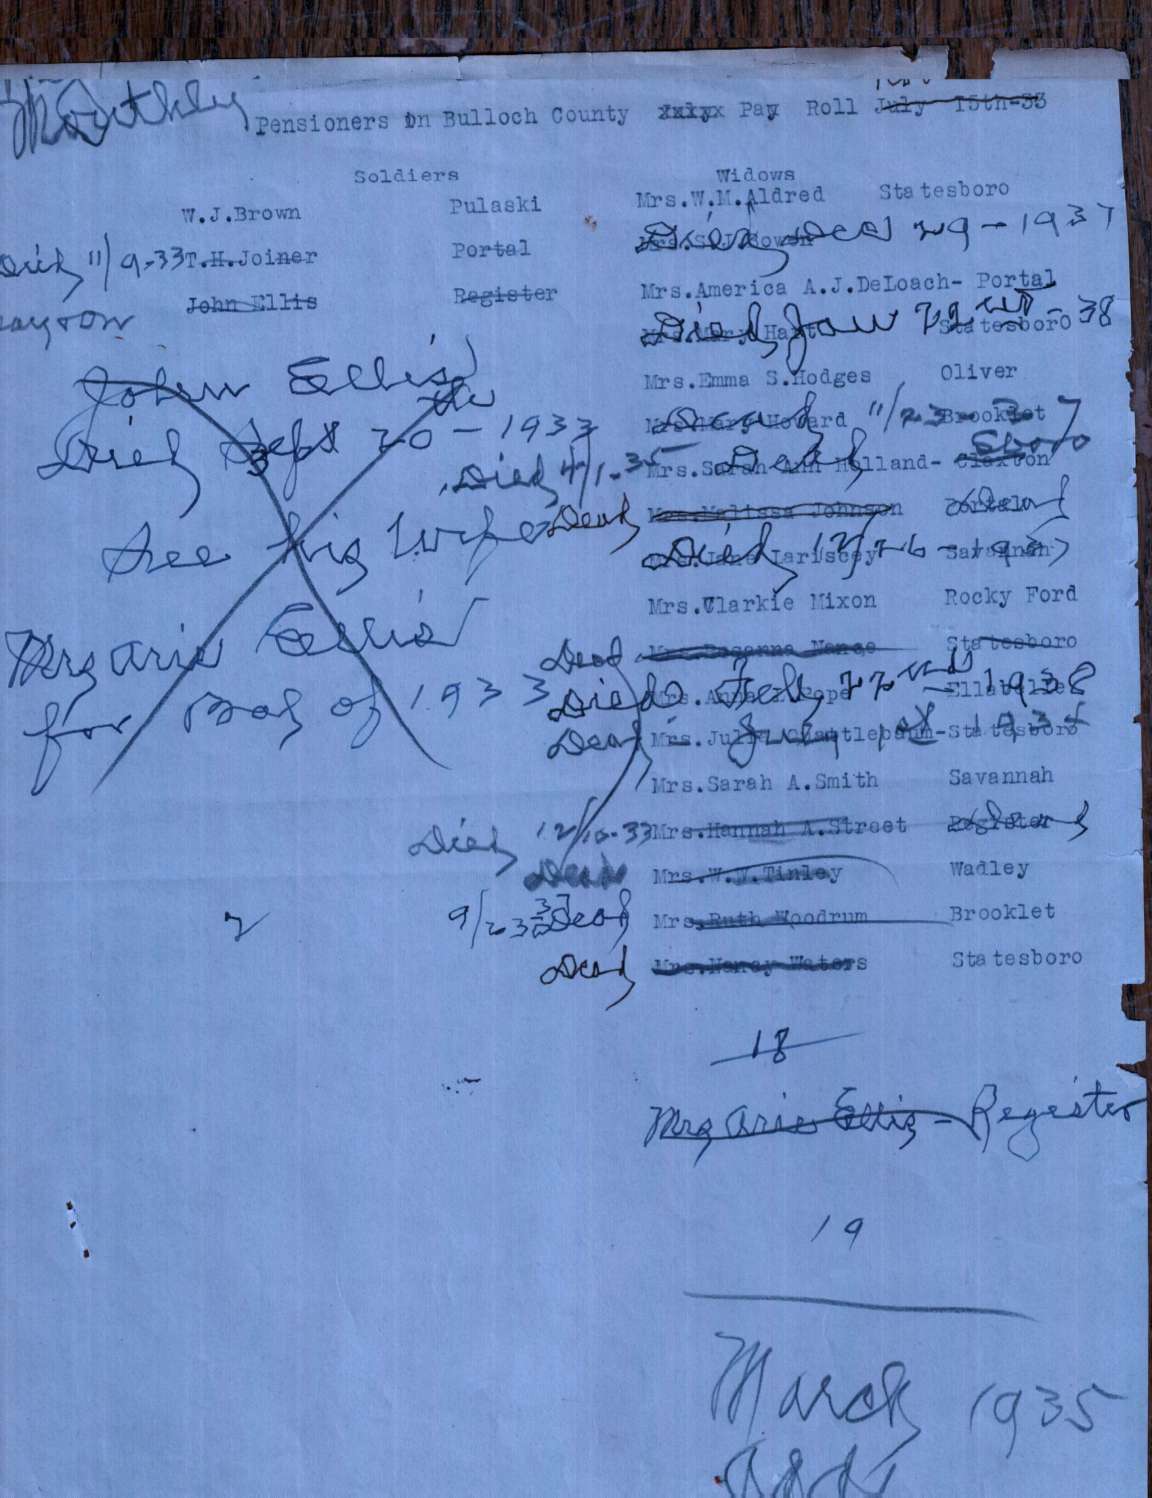 Monthly
Pensioners in Bulloch County xxlyx Pay Roll July 15th-33
Soldiers Widows
W.J.Brown Pulaski Mrs.W.M.Aldred Statesboro
Died Dec 29-1937
Died 11/9-33 T.H.Joiner Portal Mrs.S.J.
John Ellis Register Mrs.America A.J.DeLoach- Portal
Died Jan 22nd-38
Mrs.Mary Hart Statesboro
John Ellis Mrs.Emma S.Hodges Oliver
Died Sept 20-1933 Dead 11/23-37
Mrs. Howard Brooklet
Died 4/1-35 Dead Sboro
Mrs.Sarah Ann Holland- Claxton
See his Wife Dead Mrs.Melissa Johnson Portal Dead
Died 12/26-1937
Mrs.Jane Lariscey Savannah
Mrs.Clarkie Mixon Rocky Ford
Mrs Arie Ellis Dead Mrs. Nance Statesboro
for Bal of 1933 Died Feby 22nd 1938
Mrs. Anna Pope
Dead July 1st
Mrs. Statesboro
Mrs.Sarah A.Smith Savannah
Died 12/10-33 Mrs.Hannah A.Street Register Dead
Dead Mrs.W.W.Tinley Wadley
Dead Mrs.Ruth Woodrum Brooklet
Dead Mrs.Nancy Waters Statesboro
18
Mrs Arie Ellis - Regester
19
March 1935